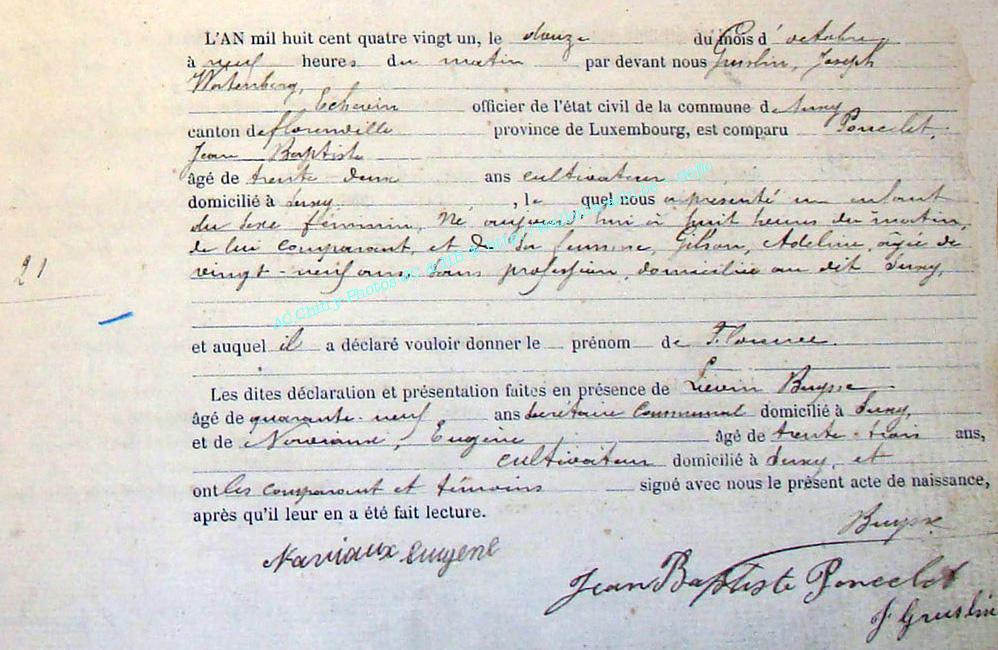 L'AN mil huit cent quatre vingt un, le douze du mois d' octobre,
à neuf heures du matin par devant nous Gruslin, Joseph
Wortenberg,
Echevin officier de l'état civil de la commune de Suxy
canton de florenville province de Luxembourg, est comparu Poncelet,
Jean Baptiste
âgé de trente-deux ans cultivateur
domicilié à Suxy, le quel nous a présenté un enfant
du sexe féminin, Né aujourd'hui à huit heures du matin,
de lui comparant et de sa femme, Gilson, Adeline, âgée de
vingt-neuf ans, sans profession, domiciliée au dit Suxy,
21
et auquel il a déclaré vouloir donner le prénom de
Les dites déclaration et présentation faites en présence de Liévin Buysse
âgé de quarante-neuf ans Secrétaire Communal domicilié à Suxy,
et de Naviaux, Eugène âgé de trente-trois ans,
cultivateur domicilié à Suxy, et
ont les comparant et témoins signé avec nous le présent acte de naissance,
après qu'il leur en a été fait lecture.
Buysse
Naviaux Eugene
Jean Baptiste Poncelet
J. Gruslin